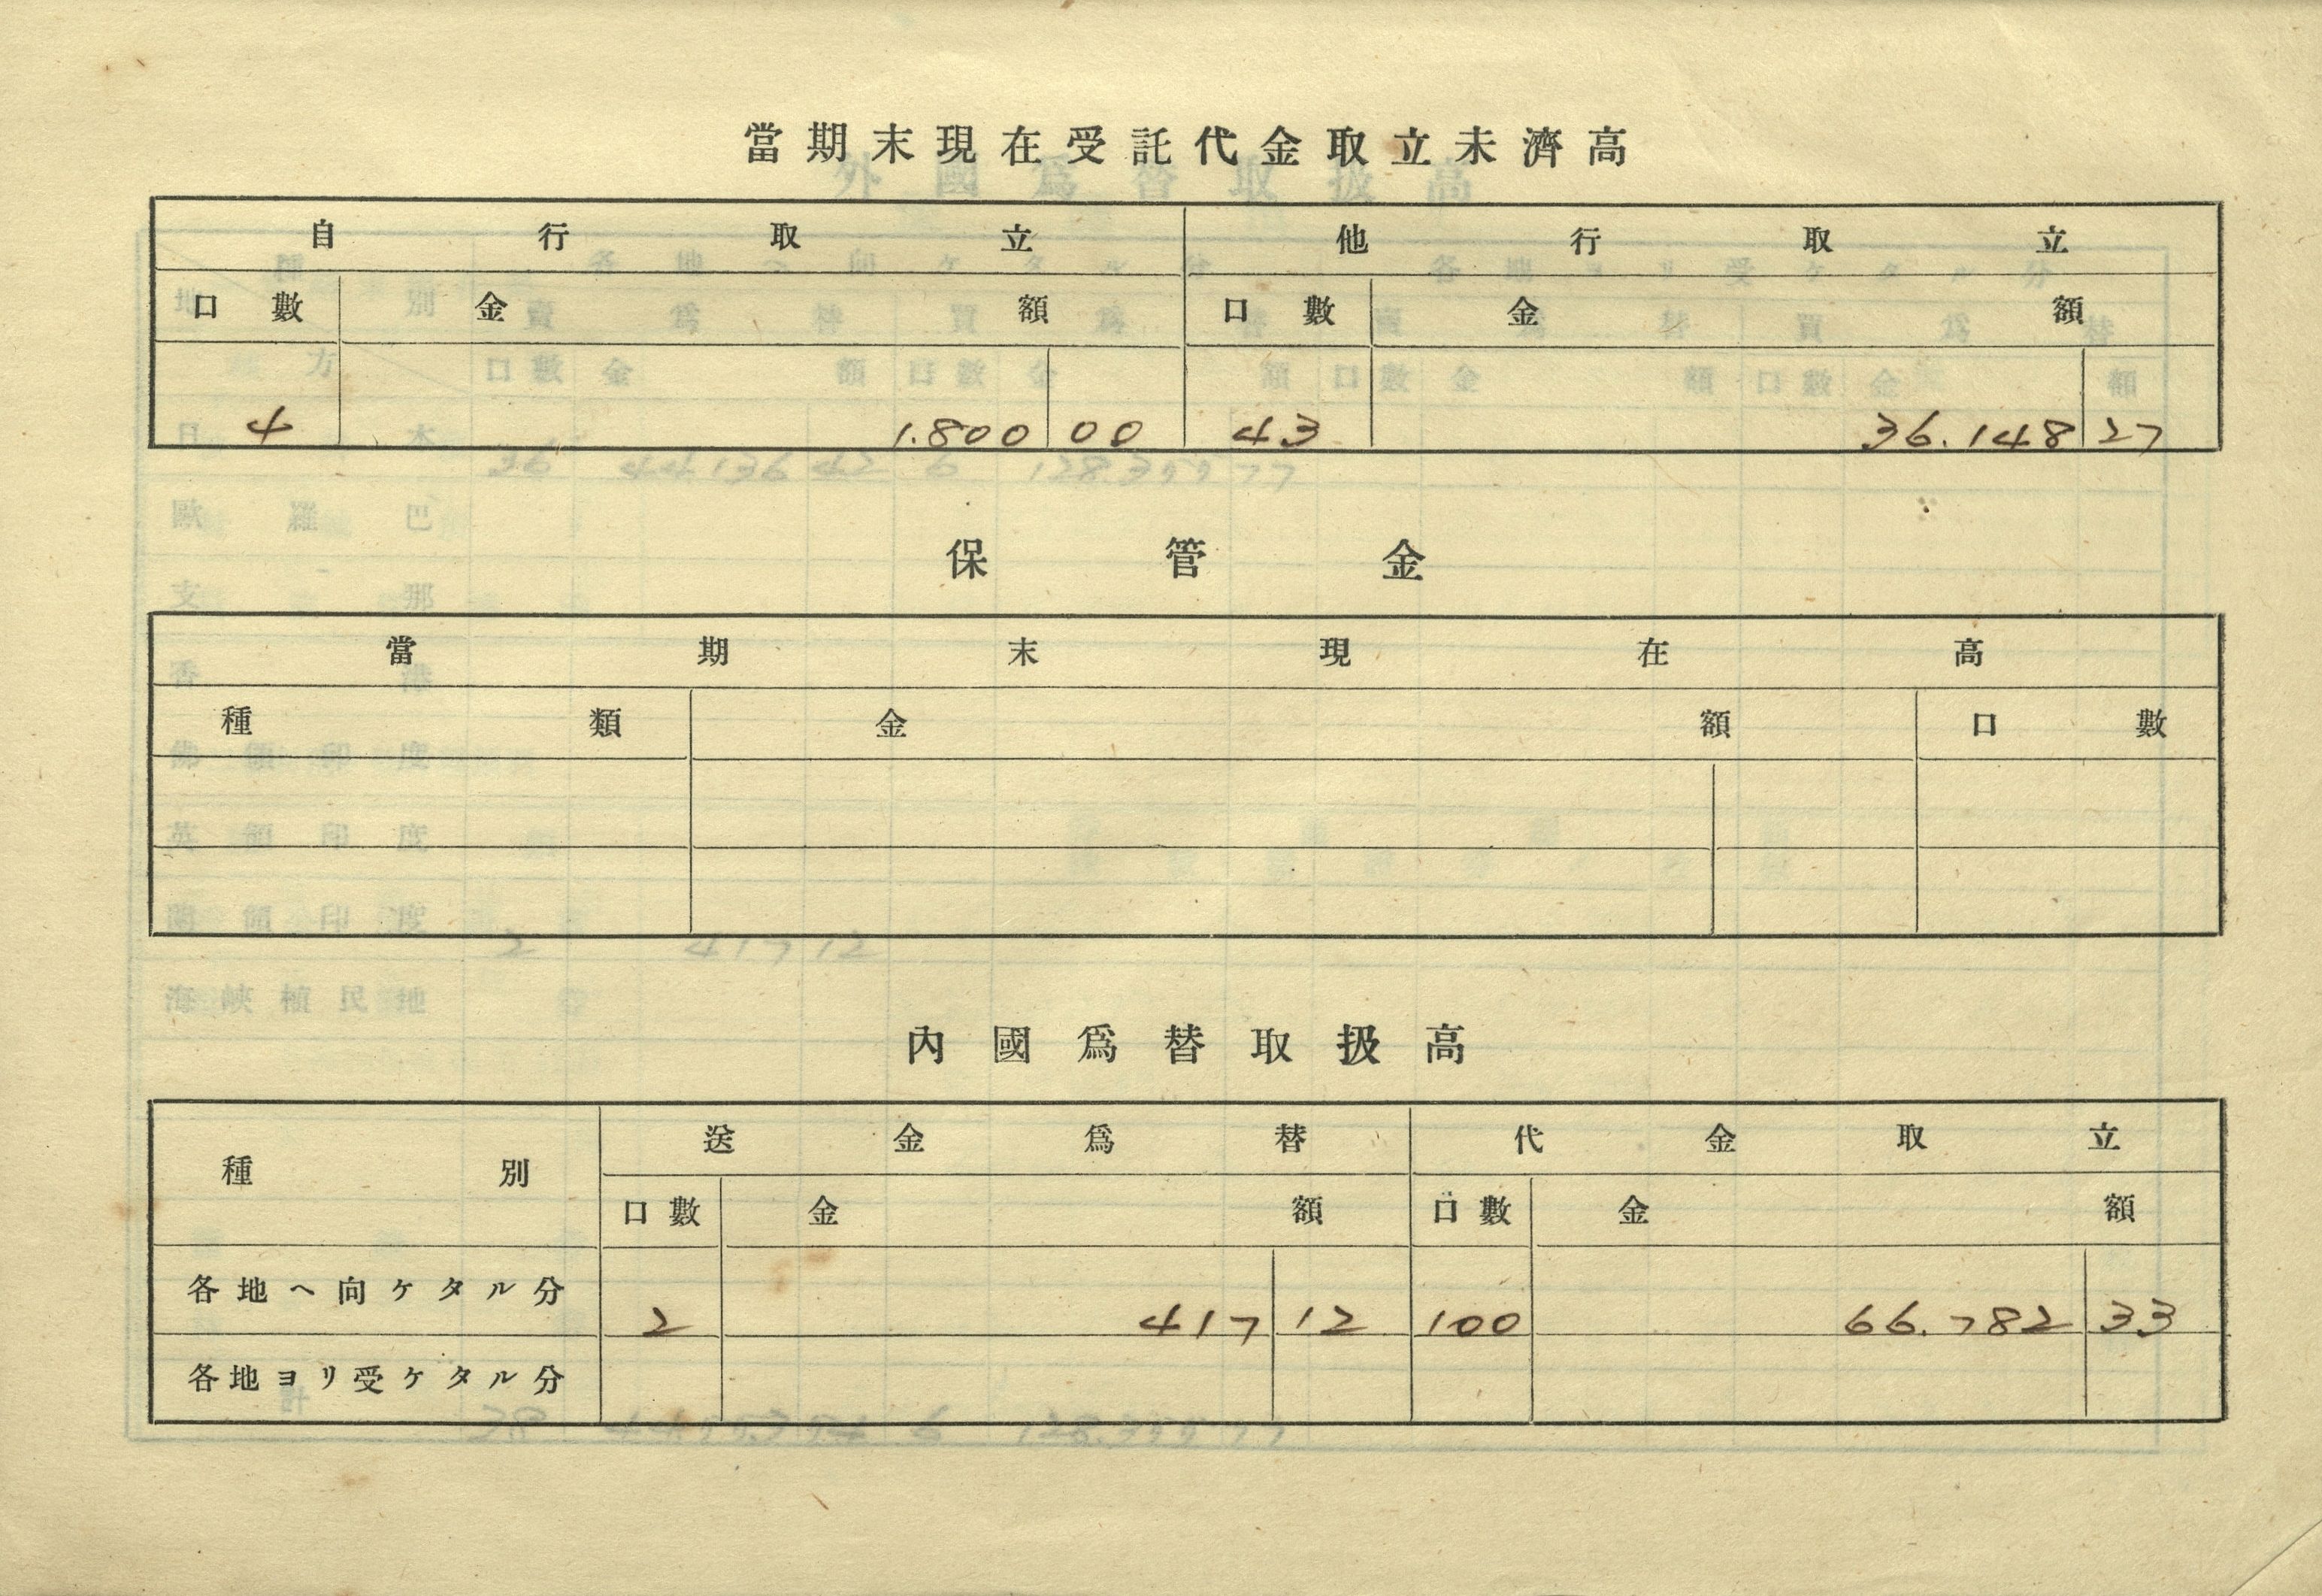 當期末現在受託代金取立未濟高
自行取立 他行取立
口數 金額 口數 金額
4 1.800 00 43 36.148 27
保管金
當期末現在高
種類 金額 口數
內國爲替取扱高
種別 送金爲替 代金取立
口數 金額 口數 金額
各地ヘ向ケタル分 2 417 12 100 66.782 33
各地ヨリ受ケタル分